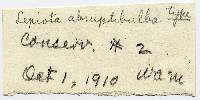 Lepiota abruptibulba type
Conserv. # 2
Oct 1, 1910 W.a.m